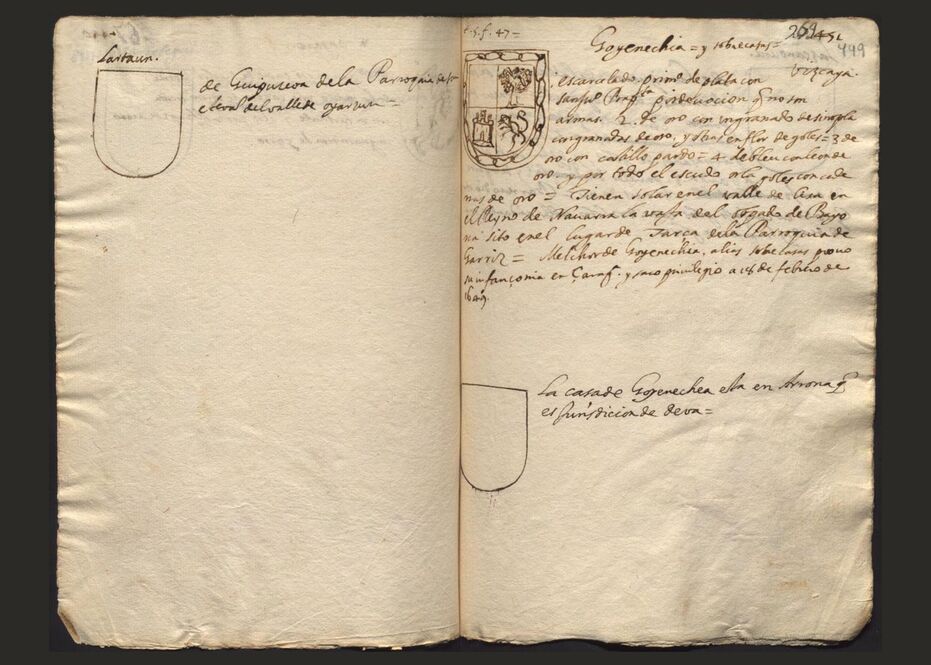 Lartaun.
de Guipuscoa de la Parroquia de
el valle de oyarzun =
t. 5. f. 47 =
Goyenechia = y sobrecasas =
Vizcaya.
escarcelado, prim.º de plata con
por devocion q̃ no son
armas. 2. de oro con un granado
con granadas de oro, y otras en flor de goles = 3 de
oro con castillo pardo = 4 de bleu con leon de
oro. y por todo el escudo orla goles con cade
nas de oro = Tienen solar en el valle de en
el Reyno de Navarra la del
sito en el Lugar de de la Parroquia de
Garriz = Melchor de Goyenechia, alias sobrecasas provo
su infançonia en Çarag.ª y saco privilegio a 18 de febrero de
1649.
La casa de Goyenechea esta en Arrona q̃
es Jurisdicion de deva =